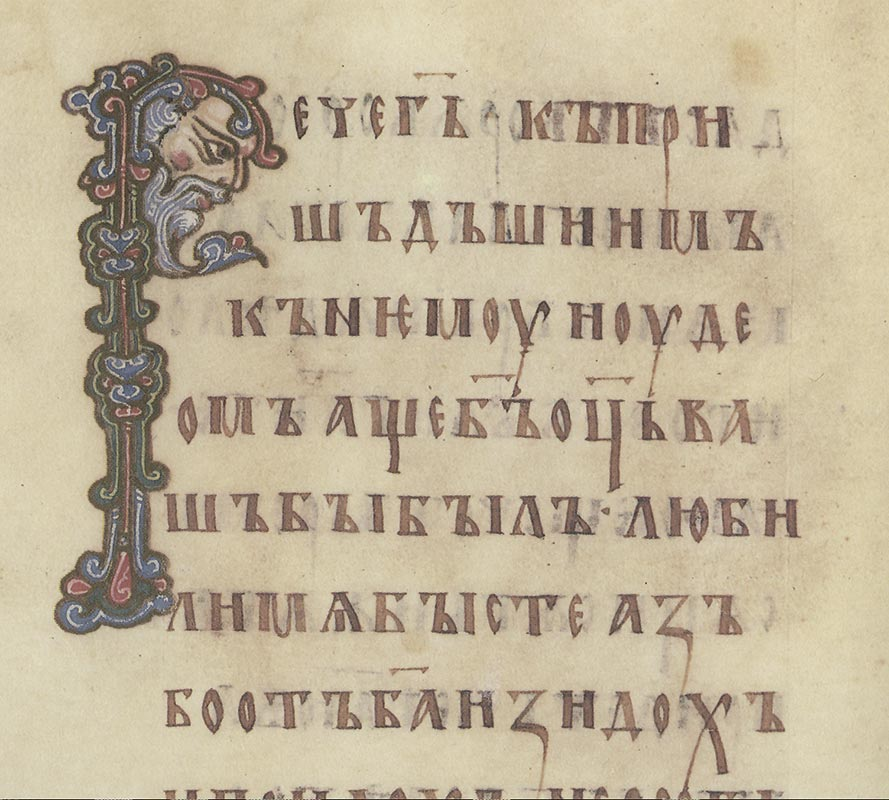 Рече г҃ь къ при
шъдъшиимъ
къ нѥмоу июде
омъ аще б҃ъ оц҃ь ва
шъ бы былъ · люби
ли мѧ бысте азъ
бо отъ б҃а изидохъ